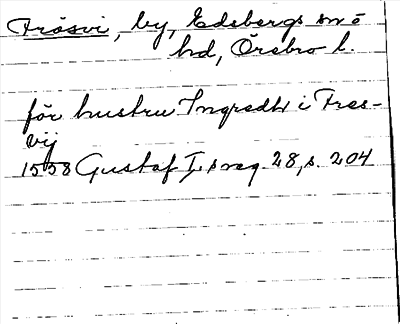 Frösvi, by, Edsbergs sn o
hd, Örebro l.
för hustru Ingredh i Frees-
vij
1558 Gustaf I:s reg. 28, s. 204